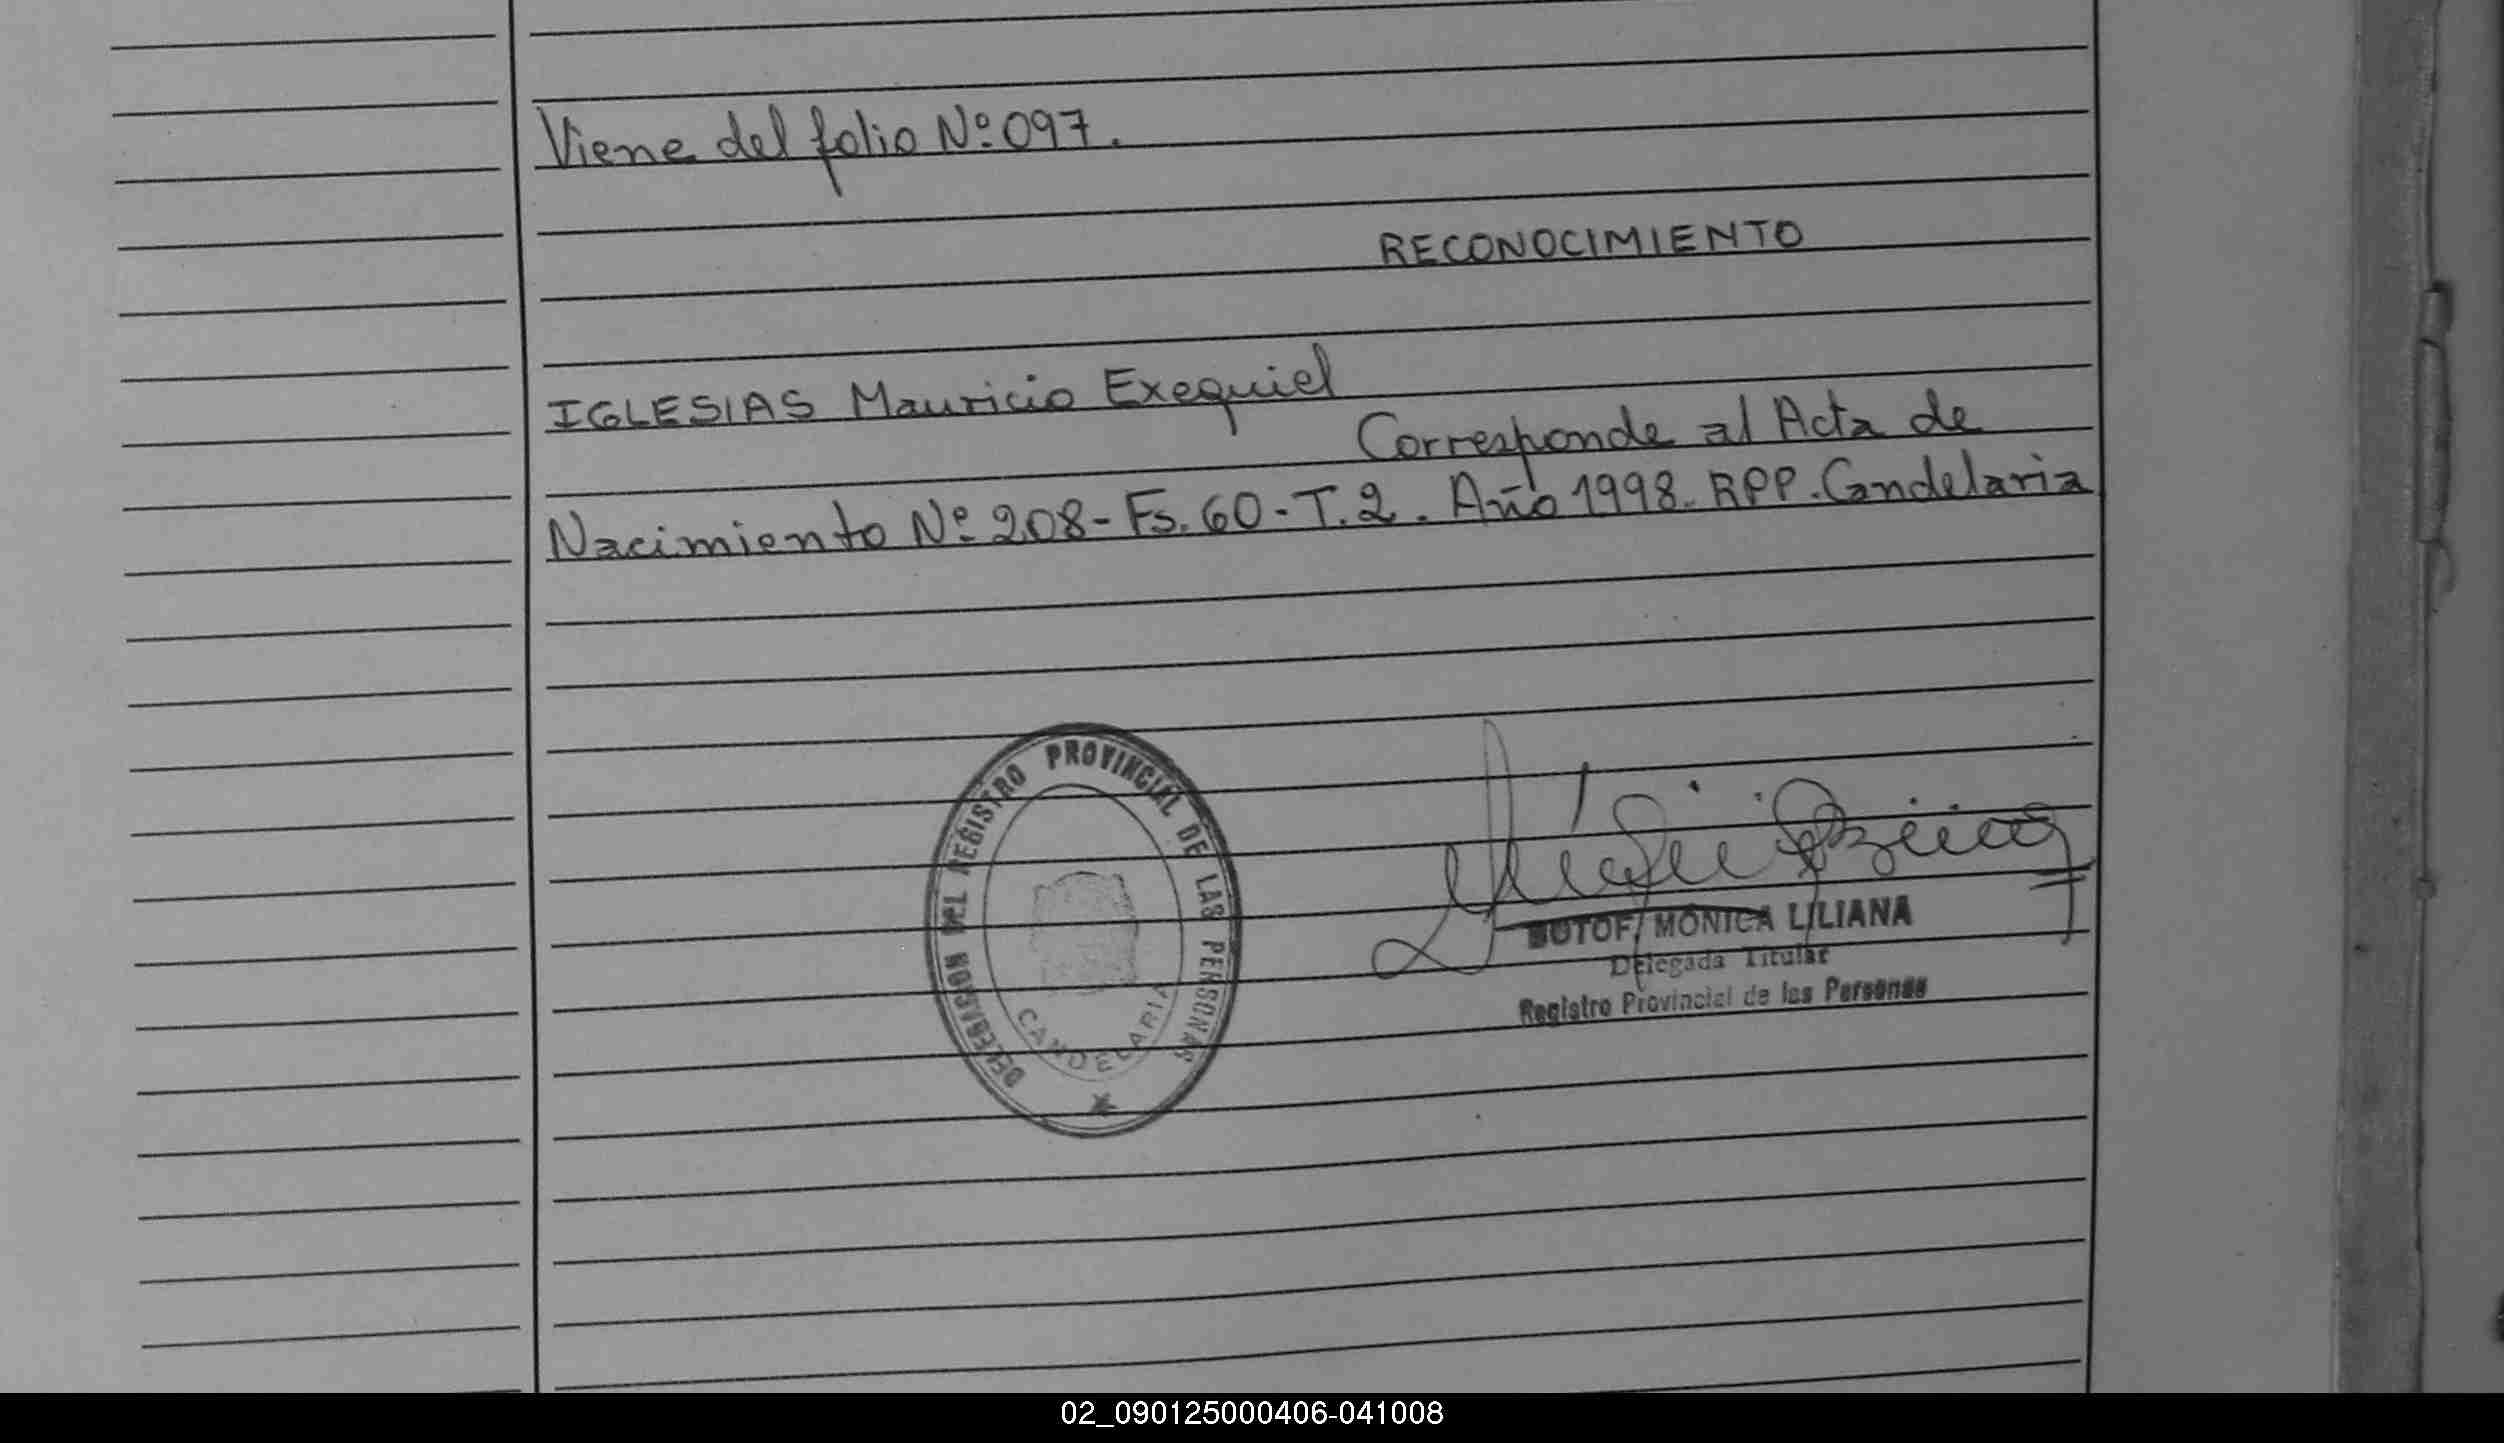 Viene del folio Nº 097.
RECONOCIMIENTO
IGLESIAS Mauricio Exequiel
Corresponde al Acta de
Nacimiento Nº 208-Fs. 60-T.2. Año 1998. RPP. Candelaria
DELEGACION DEL REGISTRO PROVINCIAL DE LAS PERSONAS
CANDELARIA
MONICA LILIANA
Delegada Titular
Registro Provincial de las Personas
02_090125000406-041008